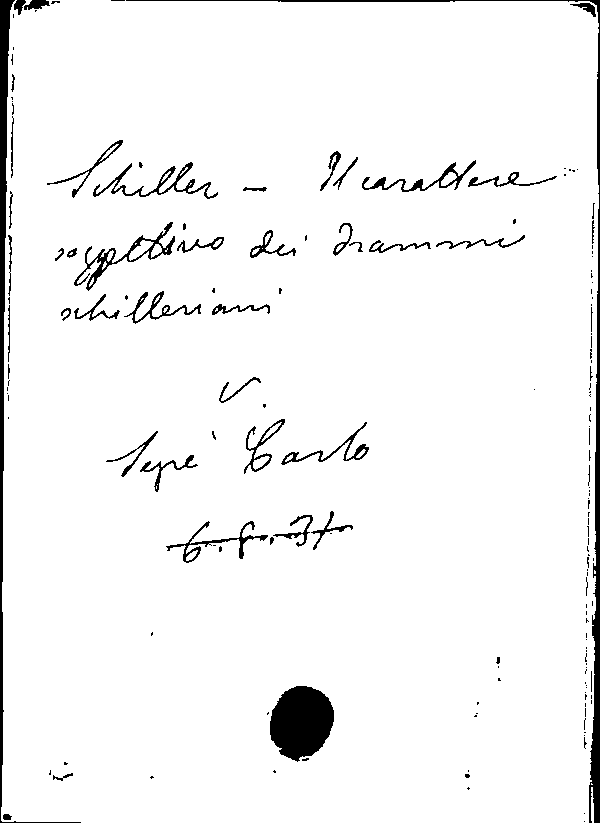 Schiller - Il carattere
soggettivo dei drammi
schilleriani
v.
Sepè Carlo
6. F. 31